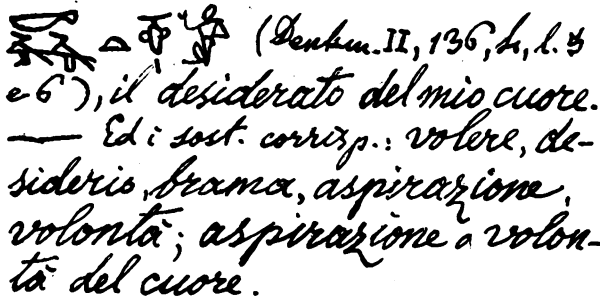 (Denkm. II, 136, h, l. 5
e 6), il desiderato del mio cuore.
— Ed i sost. corrisp.: volere, de-
siderio, brama, aspirazione,
volontà; aspirazione o volon-
tà del cuore.